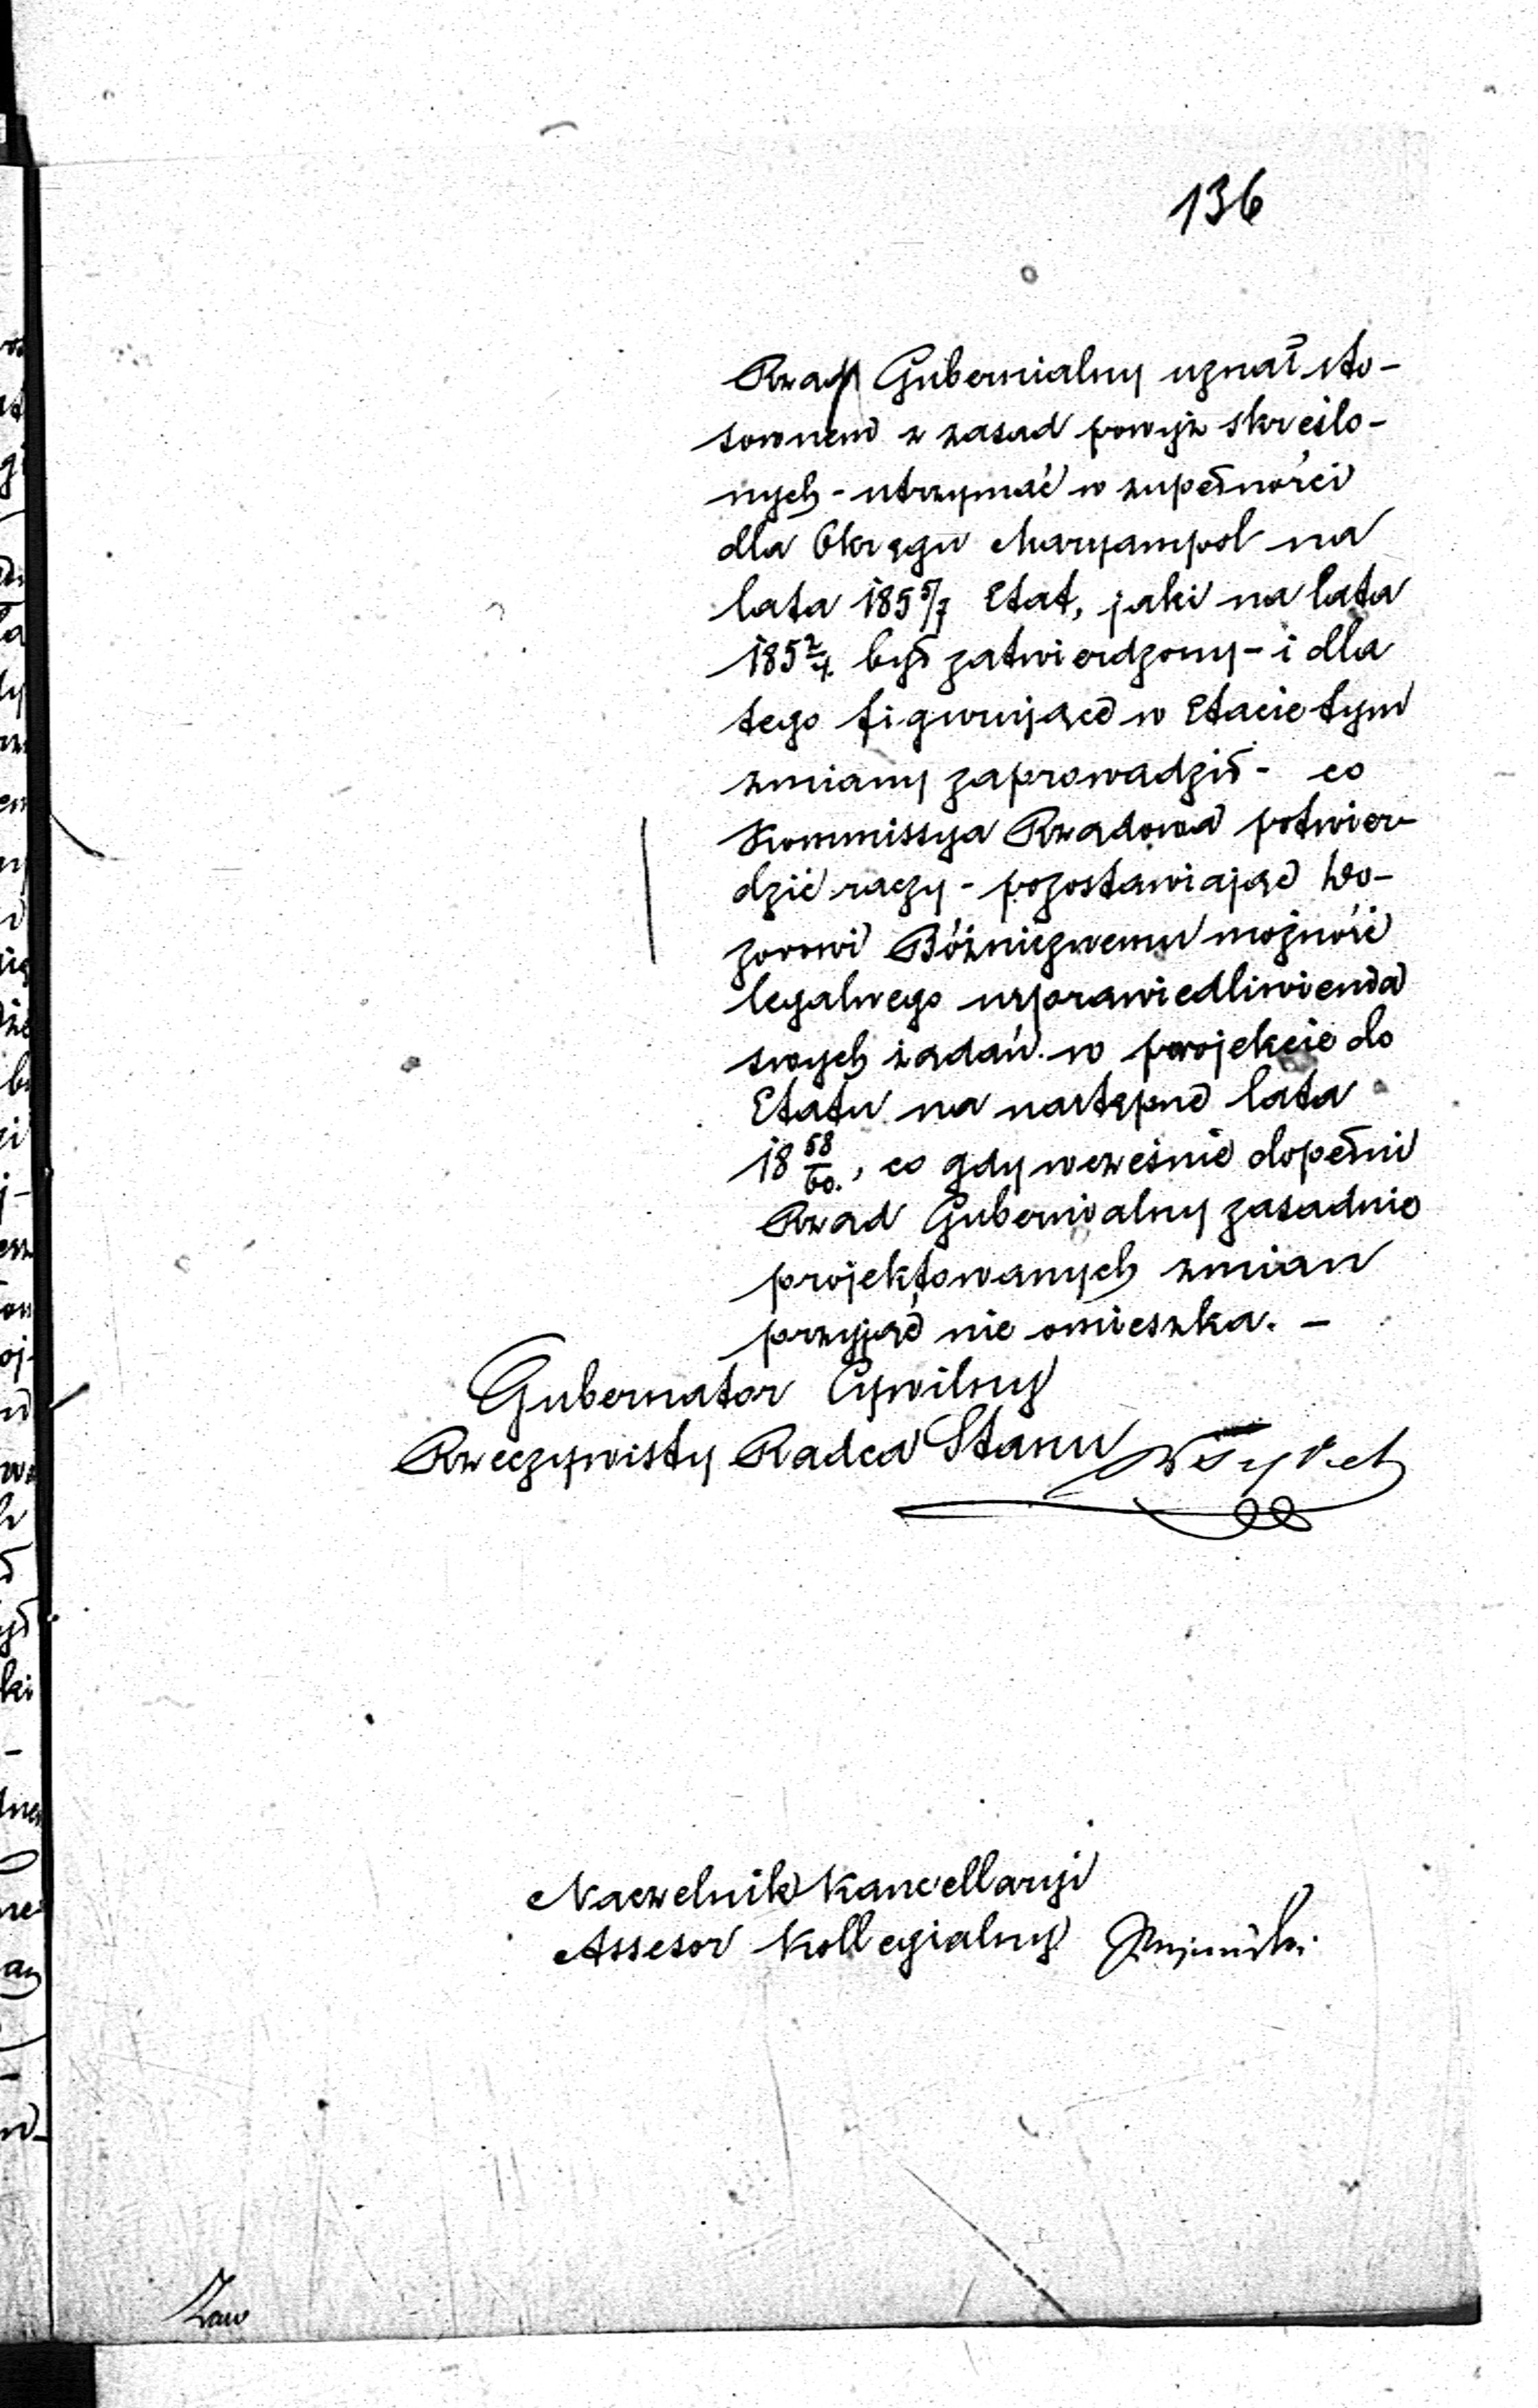 136
Rząd Gubernialny uznał sto-
sownem z zasad powyż skreślo-
nych - utrzymać w zupełności
dla Okręgu Maryampol na
lata 185 5/7 Etat, jaki na lata
185 2/4. był zatwierdzony - i dla
tego figurujące w Etacie tym
zmiany zaprowadził - co
Kommissya Rządowa potwier-
dzić raczy - pozostawiając Do-
zorowi Bóżniczemu możność
legalnego usprawiedliwienia
swych żądań w projekcie do
Etatu na następne lata
18 58/60., co gdy wcześnie dopełni
Rząd Gubernialny zasadnie
projektowanych zmian
przyjąć nie omieszka. -
Gubernator Cywilny
Rzeczywisty Radca Stanu
Naczelnik Kancellaryi
Assesor Kollegialny